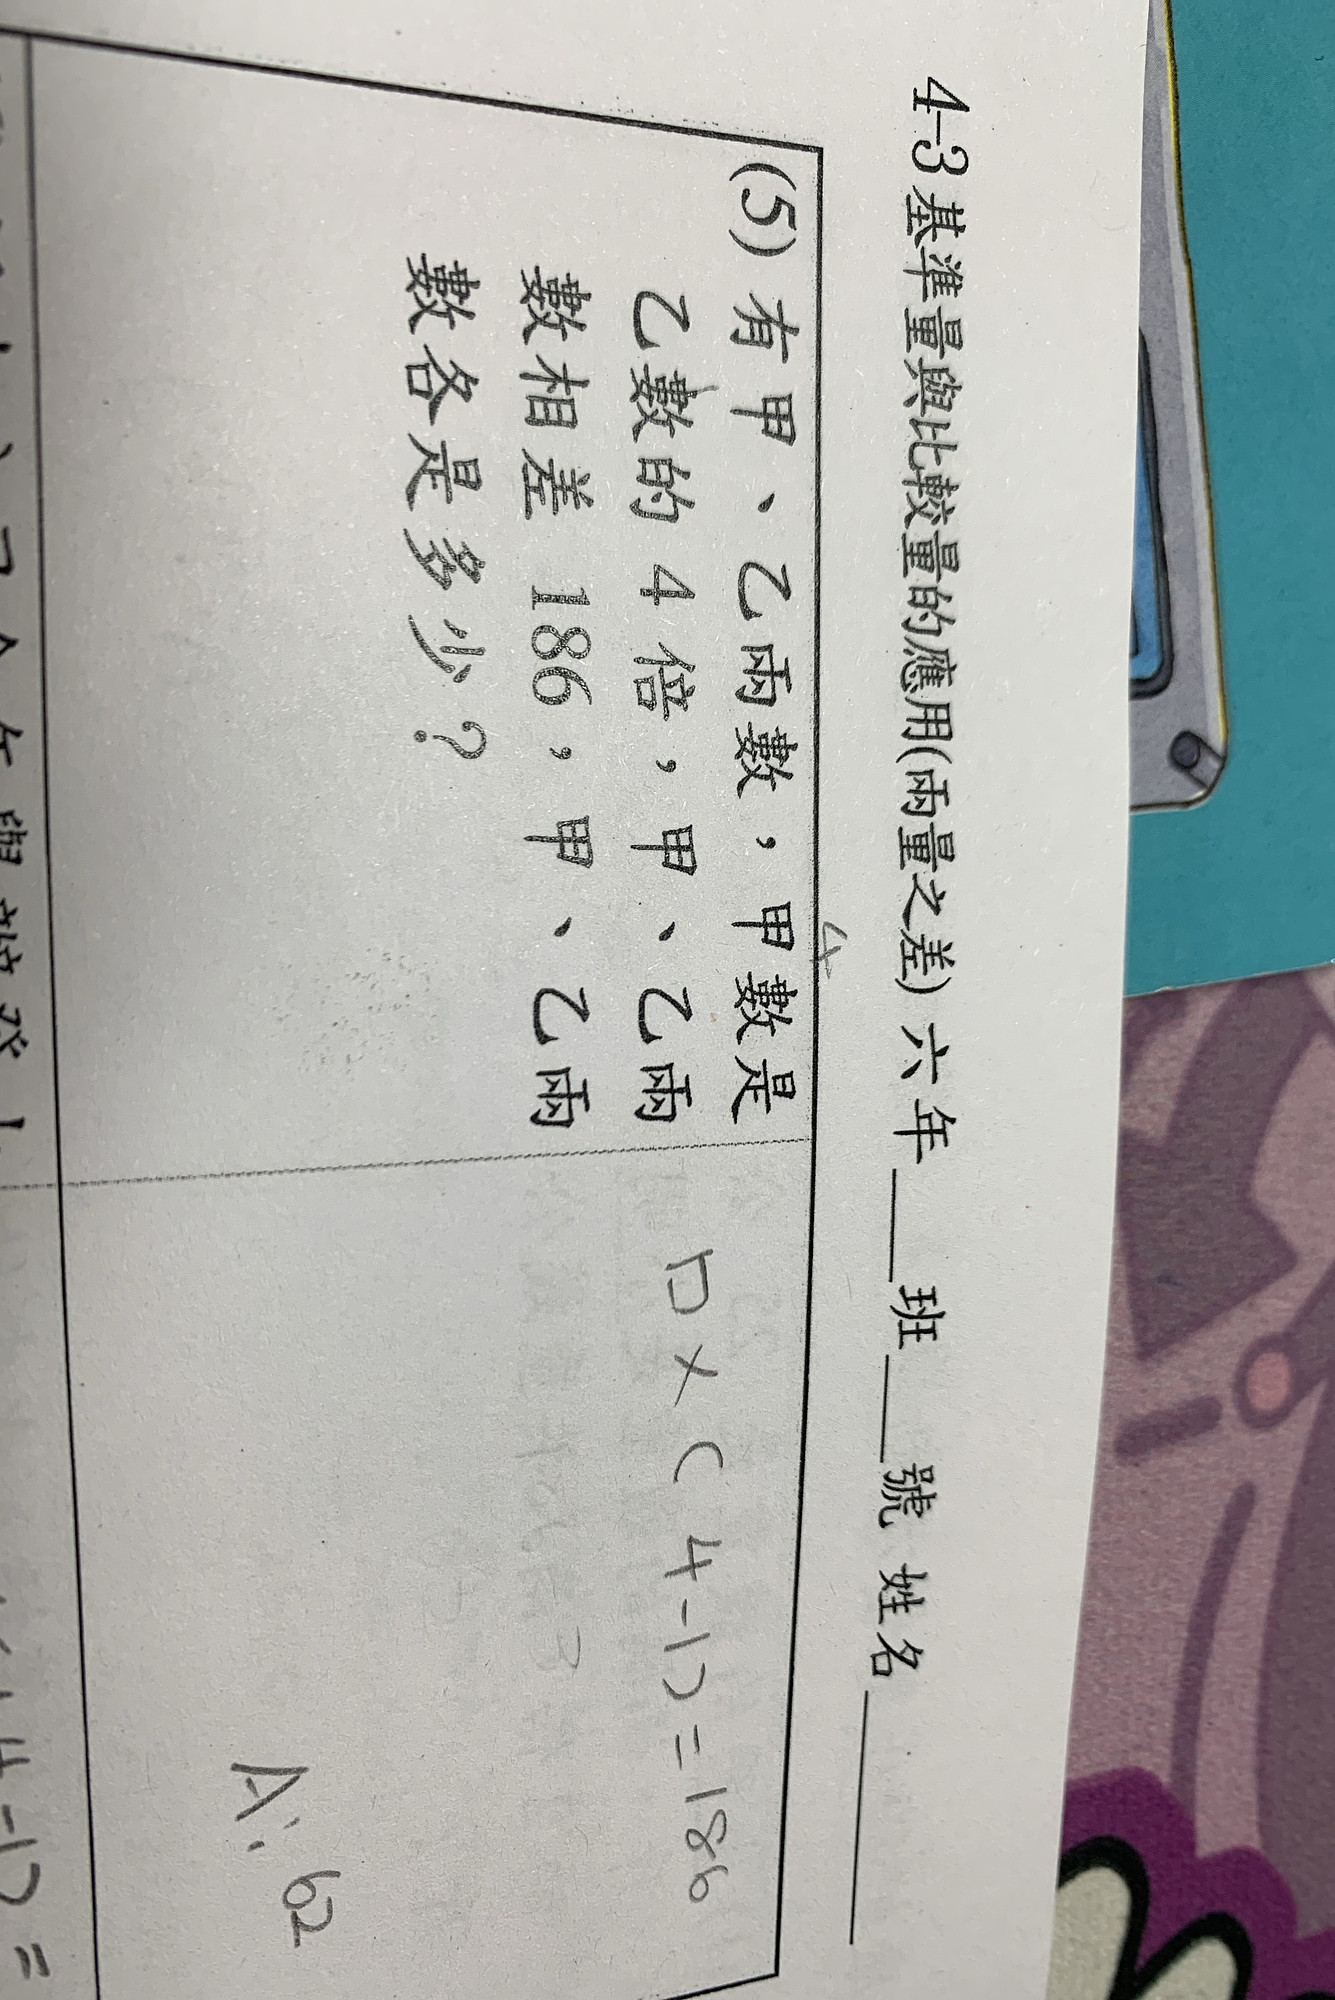 4-3 基準量與比較量的應用(兩量之差) 六年___班___號 姓名______
(5) 有甲、乙兩數，甲數是
乙數的 4 倍，甲、乙兩
數相差 186，甲、乙兩
數各是多少？
4
□×(4-1)=186
A: 62
(4-1)=